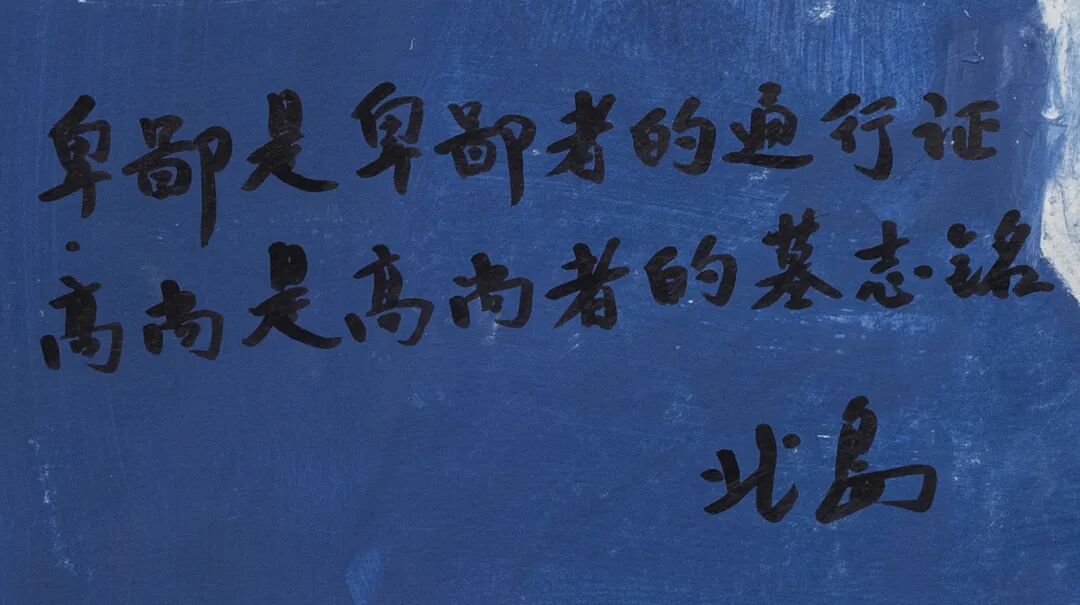 卑鄙是卑鄙者的通行证
高尚是高尚者的墓志铭
北岛